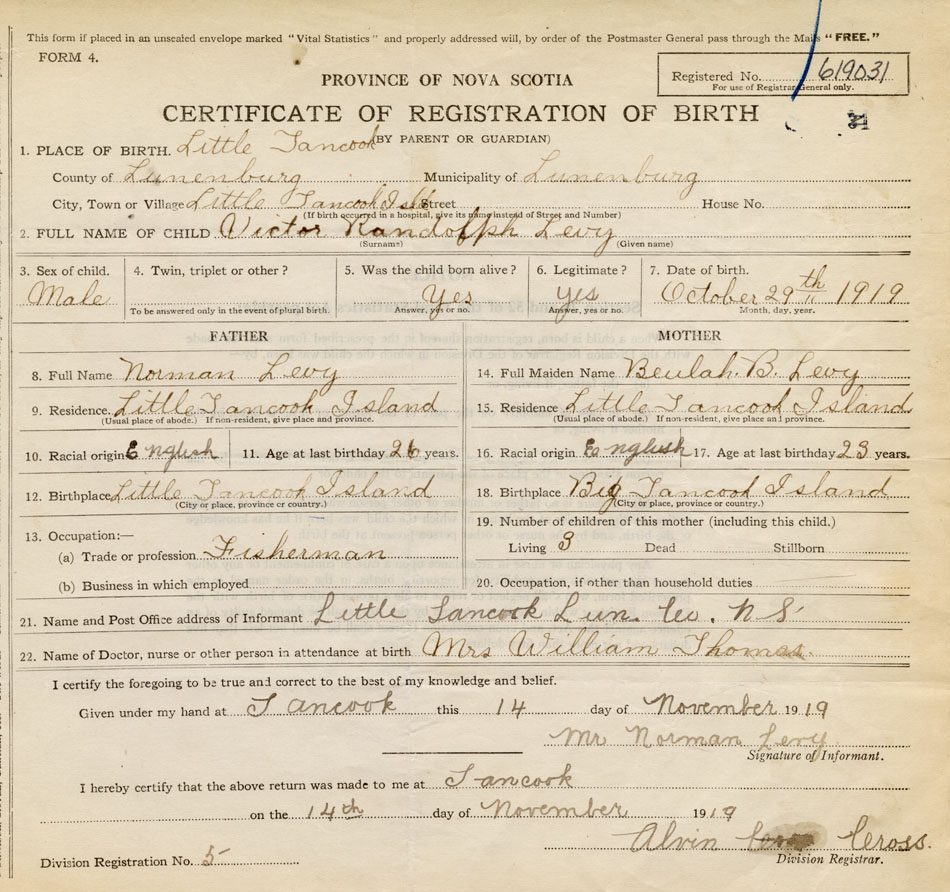 This form if placed in an unsealed envelope marked "Vital Statistics" and properly addressed will, by order of the Postmaster General pass through the Mails "FREE."
FORM 4.
Registered No. 619031
For use of Registrar General only.
PROVINCE OF NOVA SCOTIA
CERTIFICATE OF REGISTRATION OF BIRTH
(BY PARENT OR GUARDIAN)
1. PLACE OF BIRTH. Little Tancook
County of Lunenburg Municipality of Lunenburg
City, Town or Village Little Tancook Isld Street House No.
(If birth occurred in a hospital, give its name instead of Street and Number)
2. FULL NAME OF CHILD Victor Randolph Levy
(Surname) (Given name)
3. Sex of child. 4. Twin, triplet or other? 5. Was the child born alive? 6. Legitimate? 7. Date of birth.
Male Yes yes October 29th 1919
To be answered only in the event of plural birth. Answer, yes or no. Answer, yes or no. Month, day, year.
FATHER MOTHER
8. Full Name Norman Levy 14. Full Maiden Name Beulah. B. Levy
9. Residence. Little Tancook Island 15. Residence Little Tancook Island
(Usual place of abode.) If non-resident, give place and province. (Usual place of abode.) If non-resident, give place and province.
10. Racial origin English 11. Age at last birthday 26 years. 16. Racial origin English 17. Age at last birthday 23 years.
12. Birthplace Little Tancook Island 18. Birthplace Big Tancook Island
(City or place, province or country.) (City or place, province or country.)
13. Occupation:— 19. Number of children of this mother (including this child.)
(a) Trade or profession Fisherman Living 3 Dead Stillborn
(b) Business in which employed 20. Occupation, if other than household duties
21. Name and Post Office address of Informant Little Tancook Lun. Co. N S
22. Name of Doctor, nurse or other person in attendance at birth Mrs William Thomas.
I certify the foregoing to be true and correct to the best of my knowledge and belief.
Given under my hand at Tancook this 14 day of November 1919
Mr Norman Levy
Signature of Informant.
I hereby certify that the above return was made to me at Tancook
on the 14th day of November 1919
Alvin Cross.
Division Registration No. 5 Division Registrar.